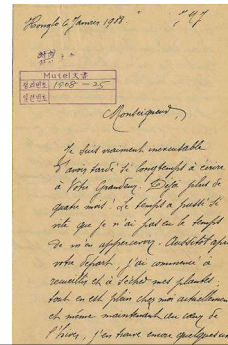 Honglo 6 Janvier 1908.
Mutel文書
정리번호 1908-25
필번호
Monseigneur,
Je suis vraiment inexcusable
d'avoir tardé si longtemps à écrire
à Votre Grandeur. Déjà plus de
quatre mois! Le temps a passé si
vite que je n'ai pas eu le temps
de m'en appercevoir. Aussitôt après
votre départ, j'ai commencé à
recueillir et à sécher mes plantes.
tout en est plein chez moi actuellement
et même maintenant au cœur de
l'hiver, j'en trouve encore quelques-un